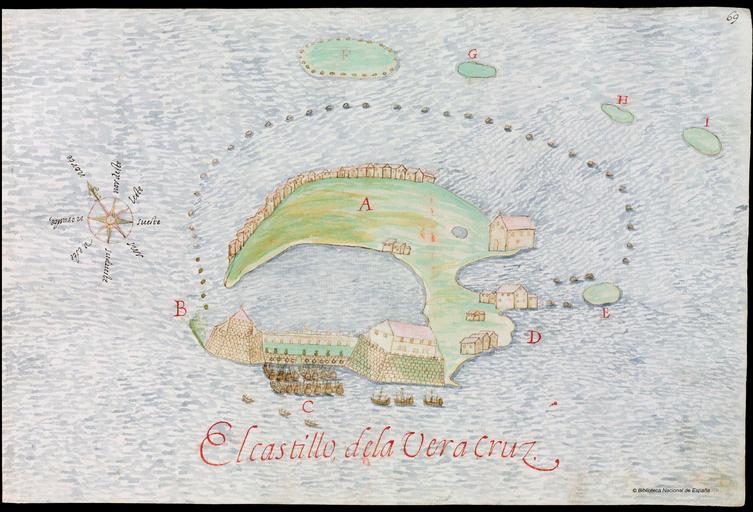 69
F
G
H
I
A
norte
nordeste
Leste
sueste
sur
sudueste
B
E
D
C
El castillo, de la Vera Cruz.
© Biblioteca Nacional de España